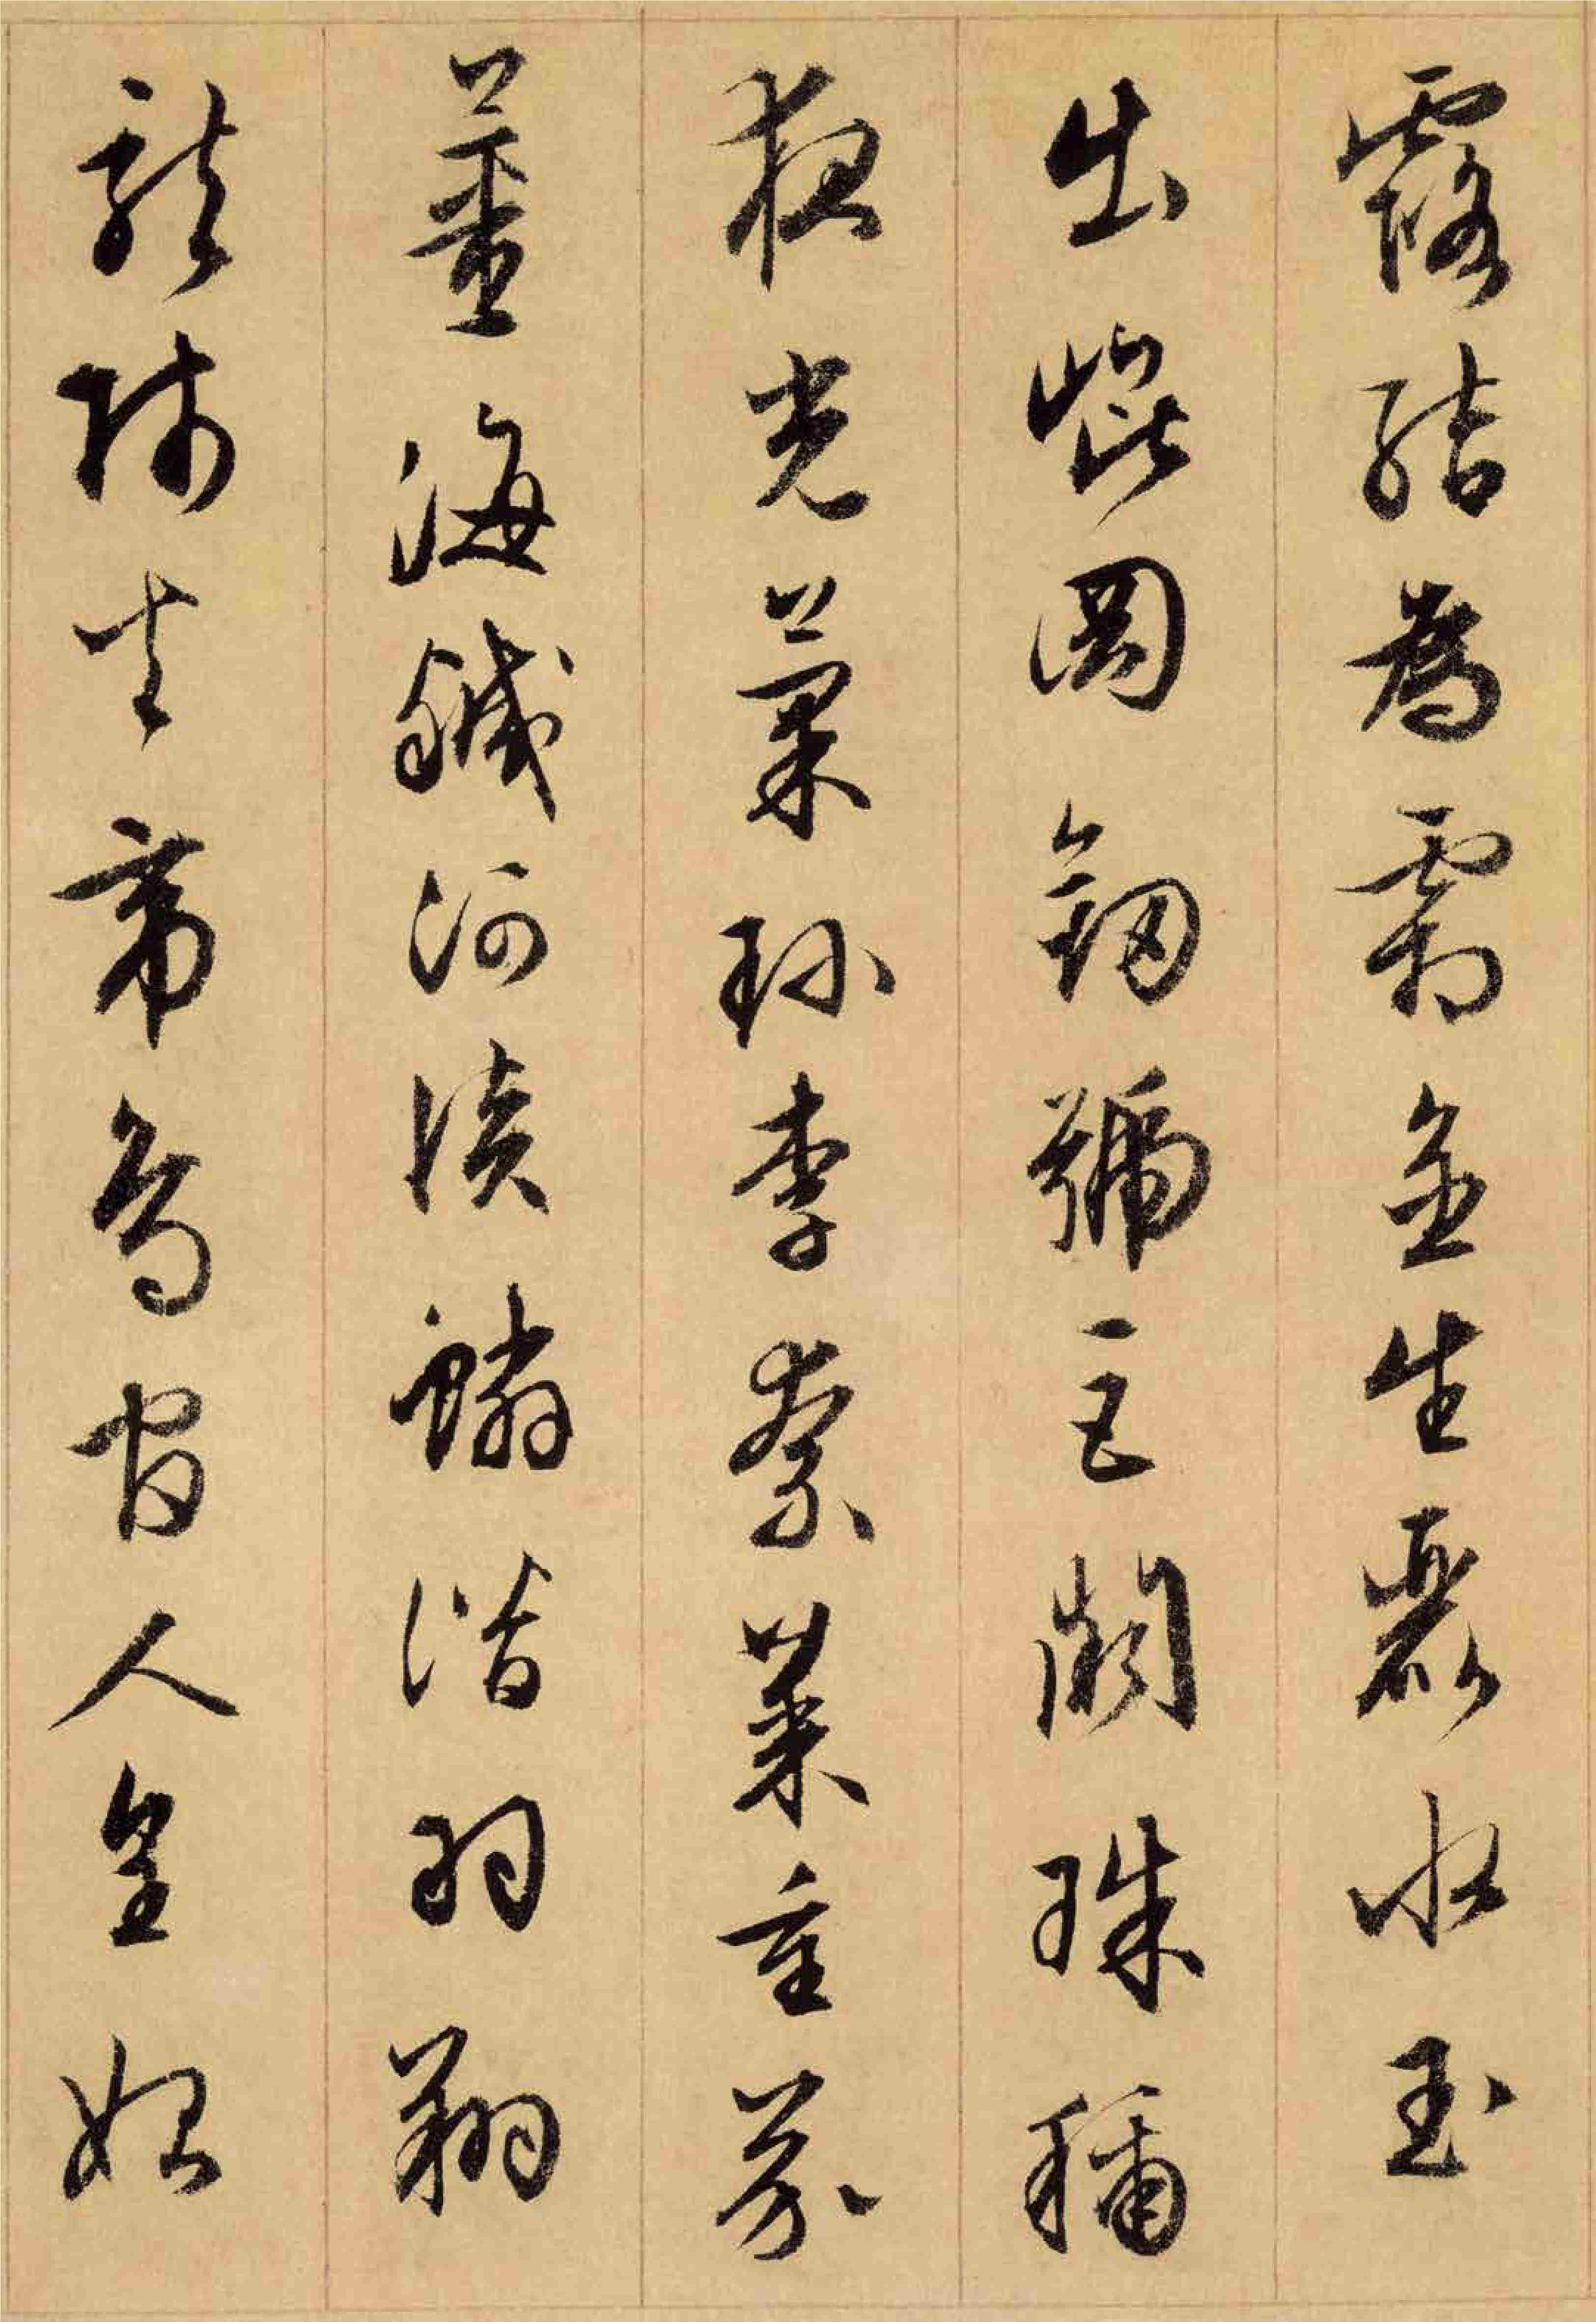 露結為霜金生麗水玉
出崐岡劒號巨闕珠稱
夜光菓珍李柰菜重芥
薑海鹹河淡鱗潛羽翔
龍師火帝鳥官人皇始